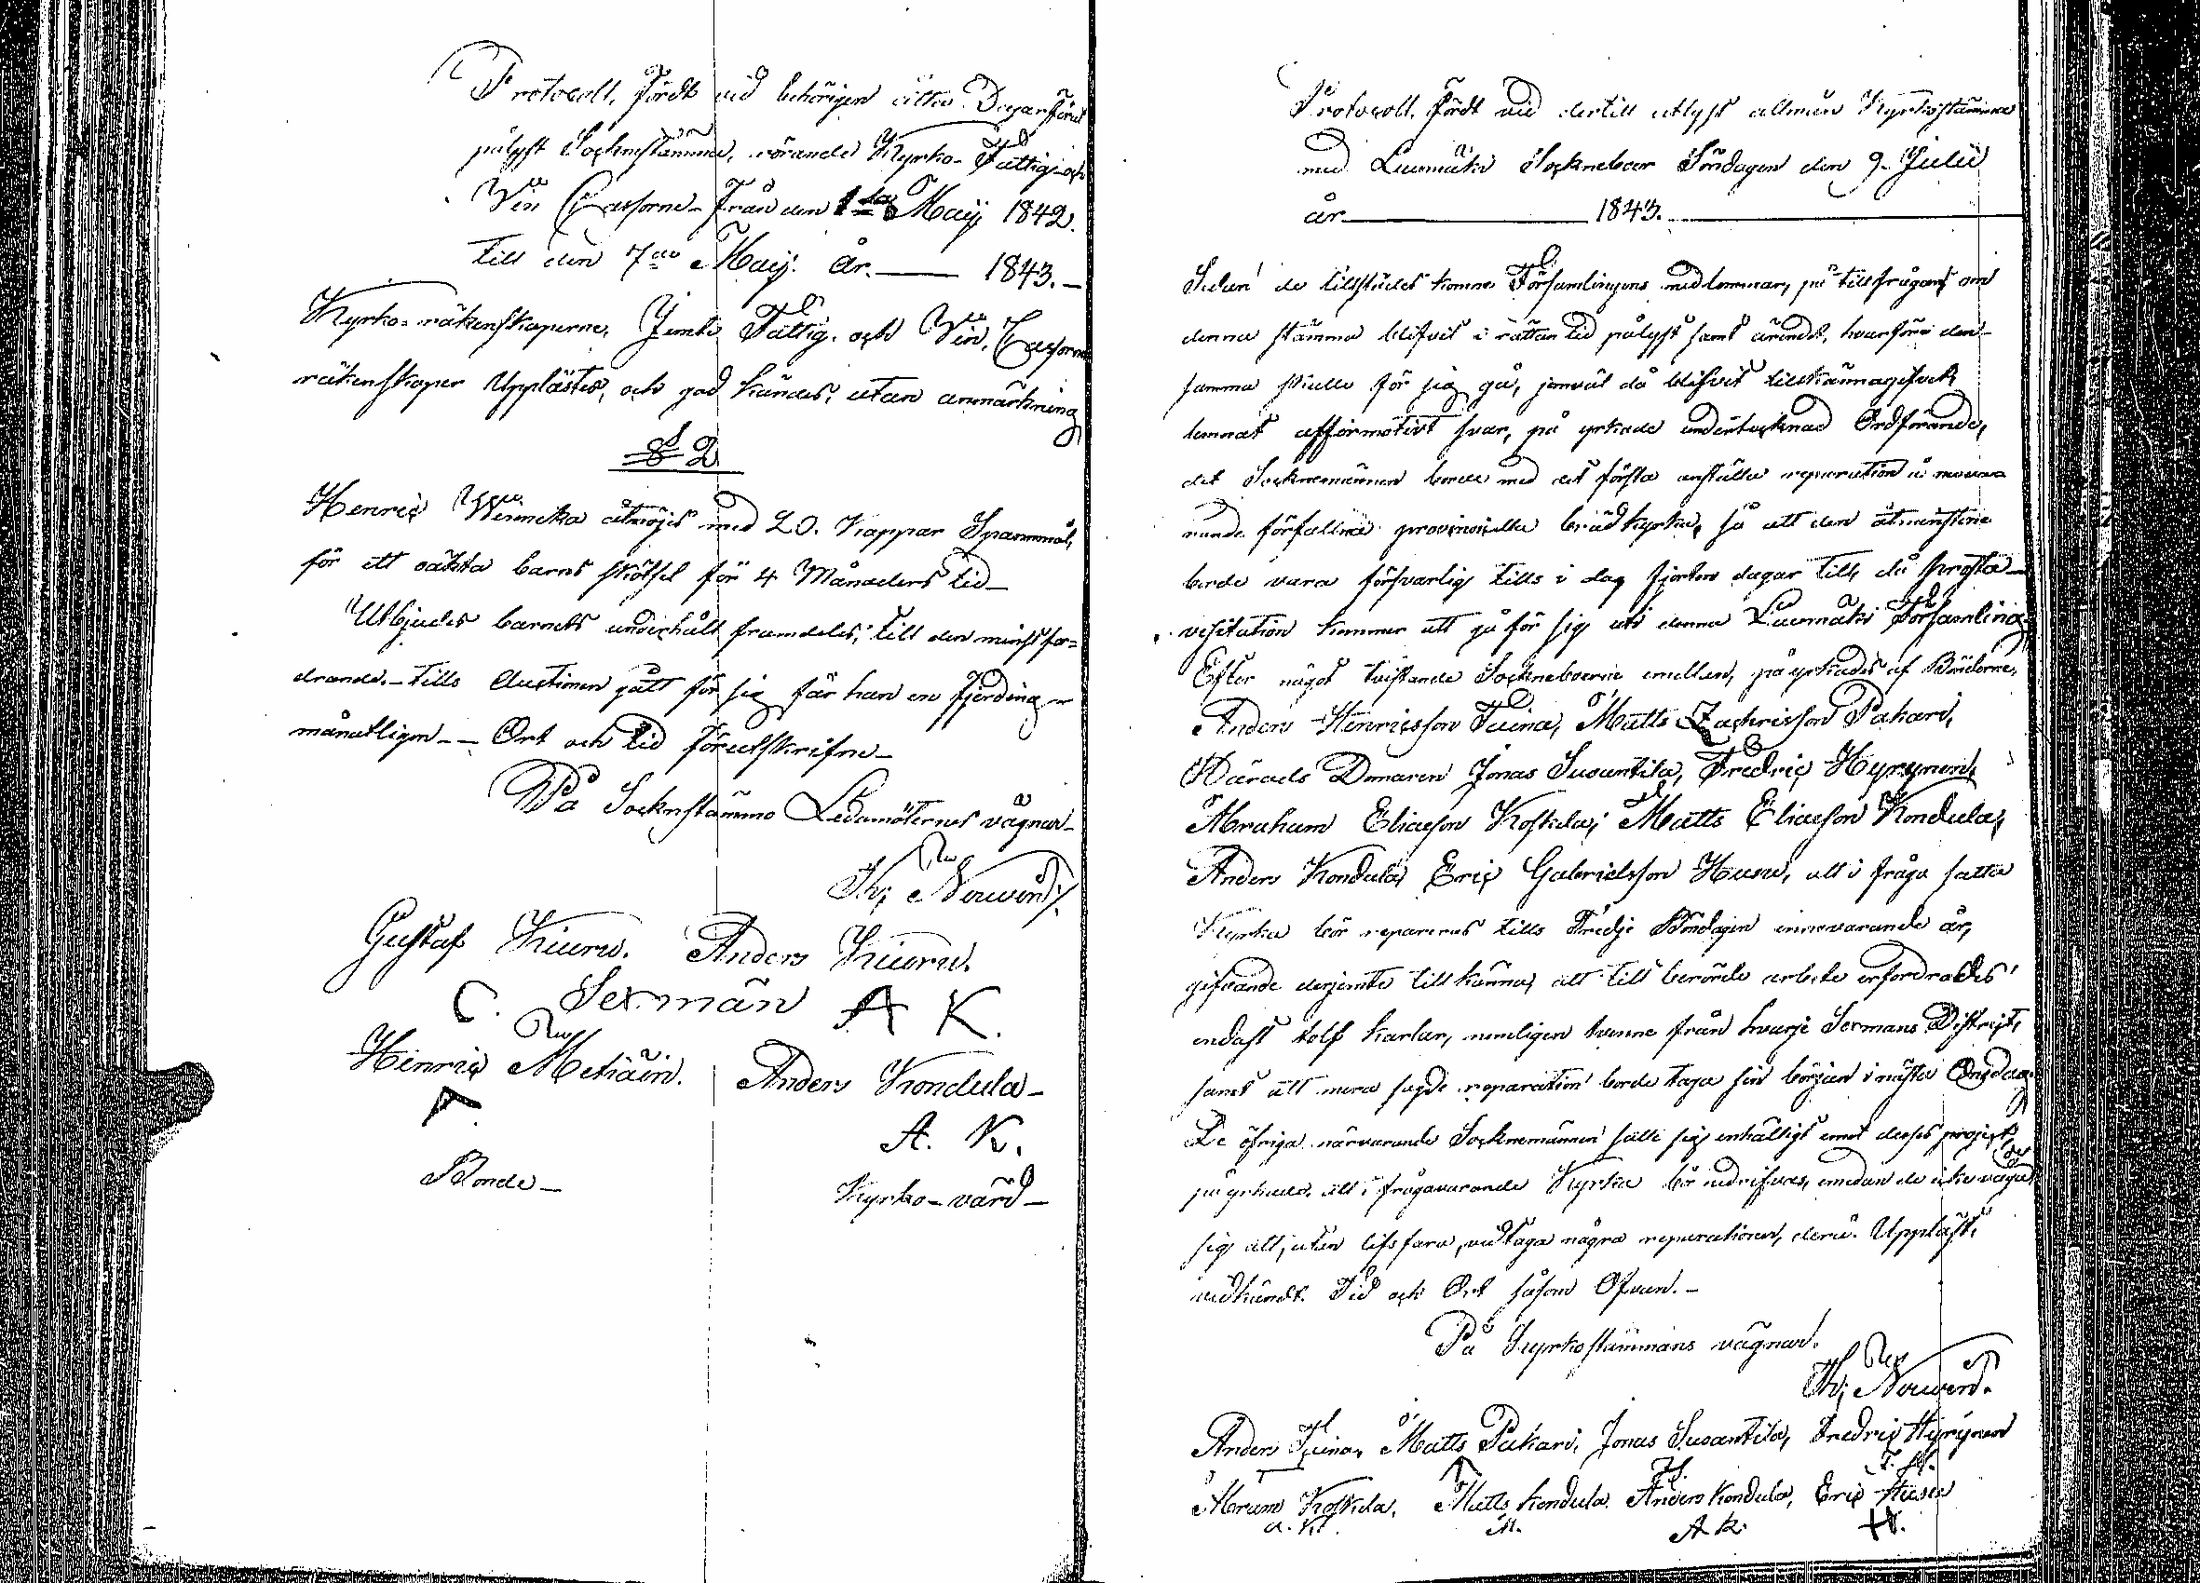 Protocoll, fördt vid behörigen åtta Dagar förut
pålyst Socknestämma, rörande Kyrko- Fattig- och
Vin Cassorne från den 1sta Maij 1842.
till den 7de Maij. År. — 1843. —
Kyrko-räkenskaperne, Jemte Fattig- och Vin, Cassorne
räkenskaper Upplästes, och god kändes, utan anmärkning
§ 2
Henric Winneka åtnöjes med 20. Kappar Spanmål,
för ett oäkta barns skötsel för 4 Månaders tid —
Utbjudes barnets underhåll framdeles, till den minst for=
drande. — tills Auctionen gått för sig får han en fjerding
månatligen — — Ort och tid förutskrifne —
På Socknstämmo Ledamöternes vägnar —
Th. Norwind /.
Gustaf Kiuru. Anders Kiuru.
C. Sexmän A K.
Henric Metiäin. Anders Kondula —
A. K.
Bonde — Kyrko-värd —
Protocoll, fördt vid dertill utlyst allmän Kyrkostämma
med Luumäki Sockneboer Söndagen den 9. Julii
år — 1843. —
Sedan de tillstädes komne Församlingens medlemmar, på tillfrågan om
denna stämma blifvit i rättan tid pålyst samt ärendet, hvarföre den-
samma skulle för sig gå, jemväl då blifvit tillkännagifvet,
lemnat affirmativt svar, på yrkade undertecknad Ordförande,
det Socknemännen borde med det första anställa reparation å
förfallna provinciella brädkyrka, så att den åtminstone
borde vara försvarlig tills i dag fjorton dagar till, då prosta-
visitation kommer att gå för sig uti denna Luumäki Församling.
Efter något tvistande Sockneboerne emellan, på yrkades af Bönderne,
Anders Henricsson Tuina, Matts Zachrisson Pakari,
Härads Domaren Jonas Suoantila, Fredric Hyrynen,
Abraham Eliaeson Koskela, Matts Eliaeson Kondula,
Anders Kondula, Eric Gabrielsson Husu, att i fråga satta
Kyrka bör repareras tills Tredje Böndagen innevarande år,
gifvande derjemte tillkänna, att till berörde arbete erfordrades
endast tolf karlar, nemligen tvenne från hvarje Sexmans District,
samt att mera sagde reparation borde taga sin början i nästa Onsdag.
De öfriga närvarande Socknemännen satte sig enhälligt emot desses project,
på yrkade, att i frågavarande Kyrka bör nedrifvas, emedan de icke våga
sig att, utan lifsfara, vidtaga några reparationer, derå. Uppläst,
vidkändt. Tid och Ort såsom Ofvan. —
På Kyrkostämmans vägnar.
Th. Norwind.
Anders Tuina, Matts Pakari, Jonas Suoantila, Fredric Hyrynen
F. H.
Abram Koskela, Matts Kondula, Anders Kondula, Eric Husu
A. K. M. A K. H.